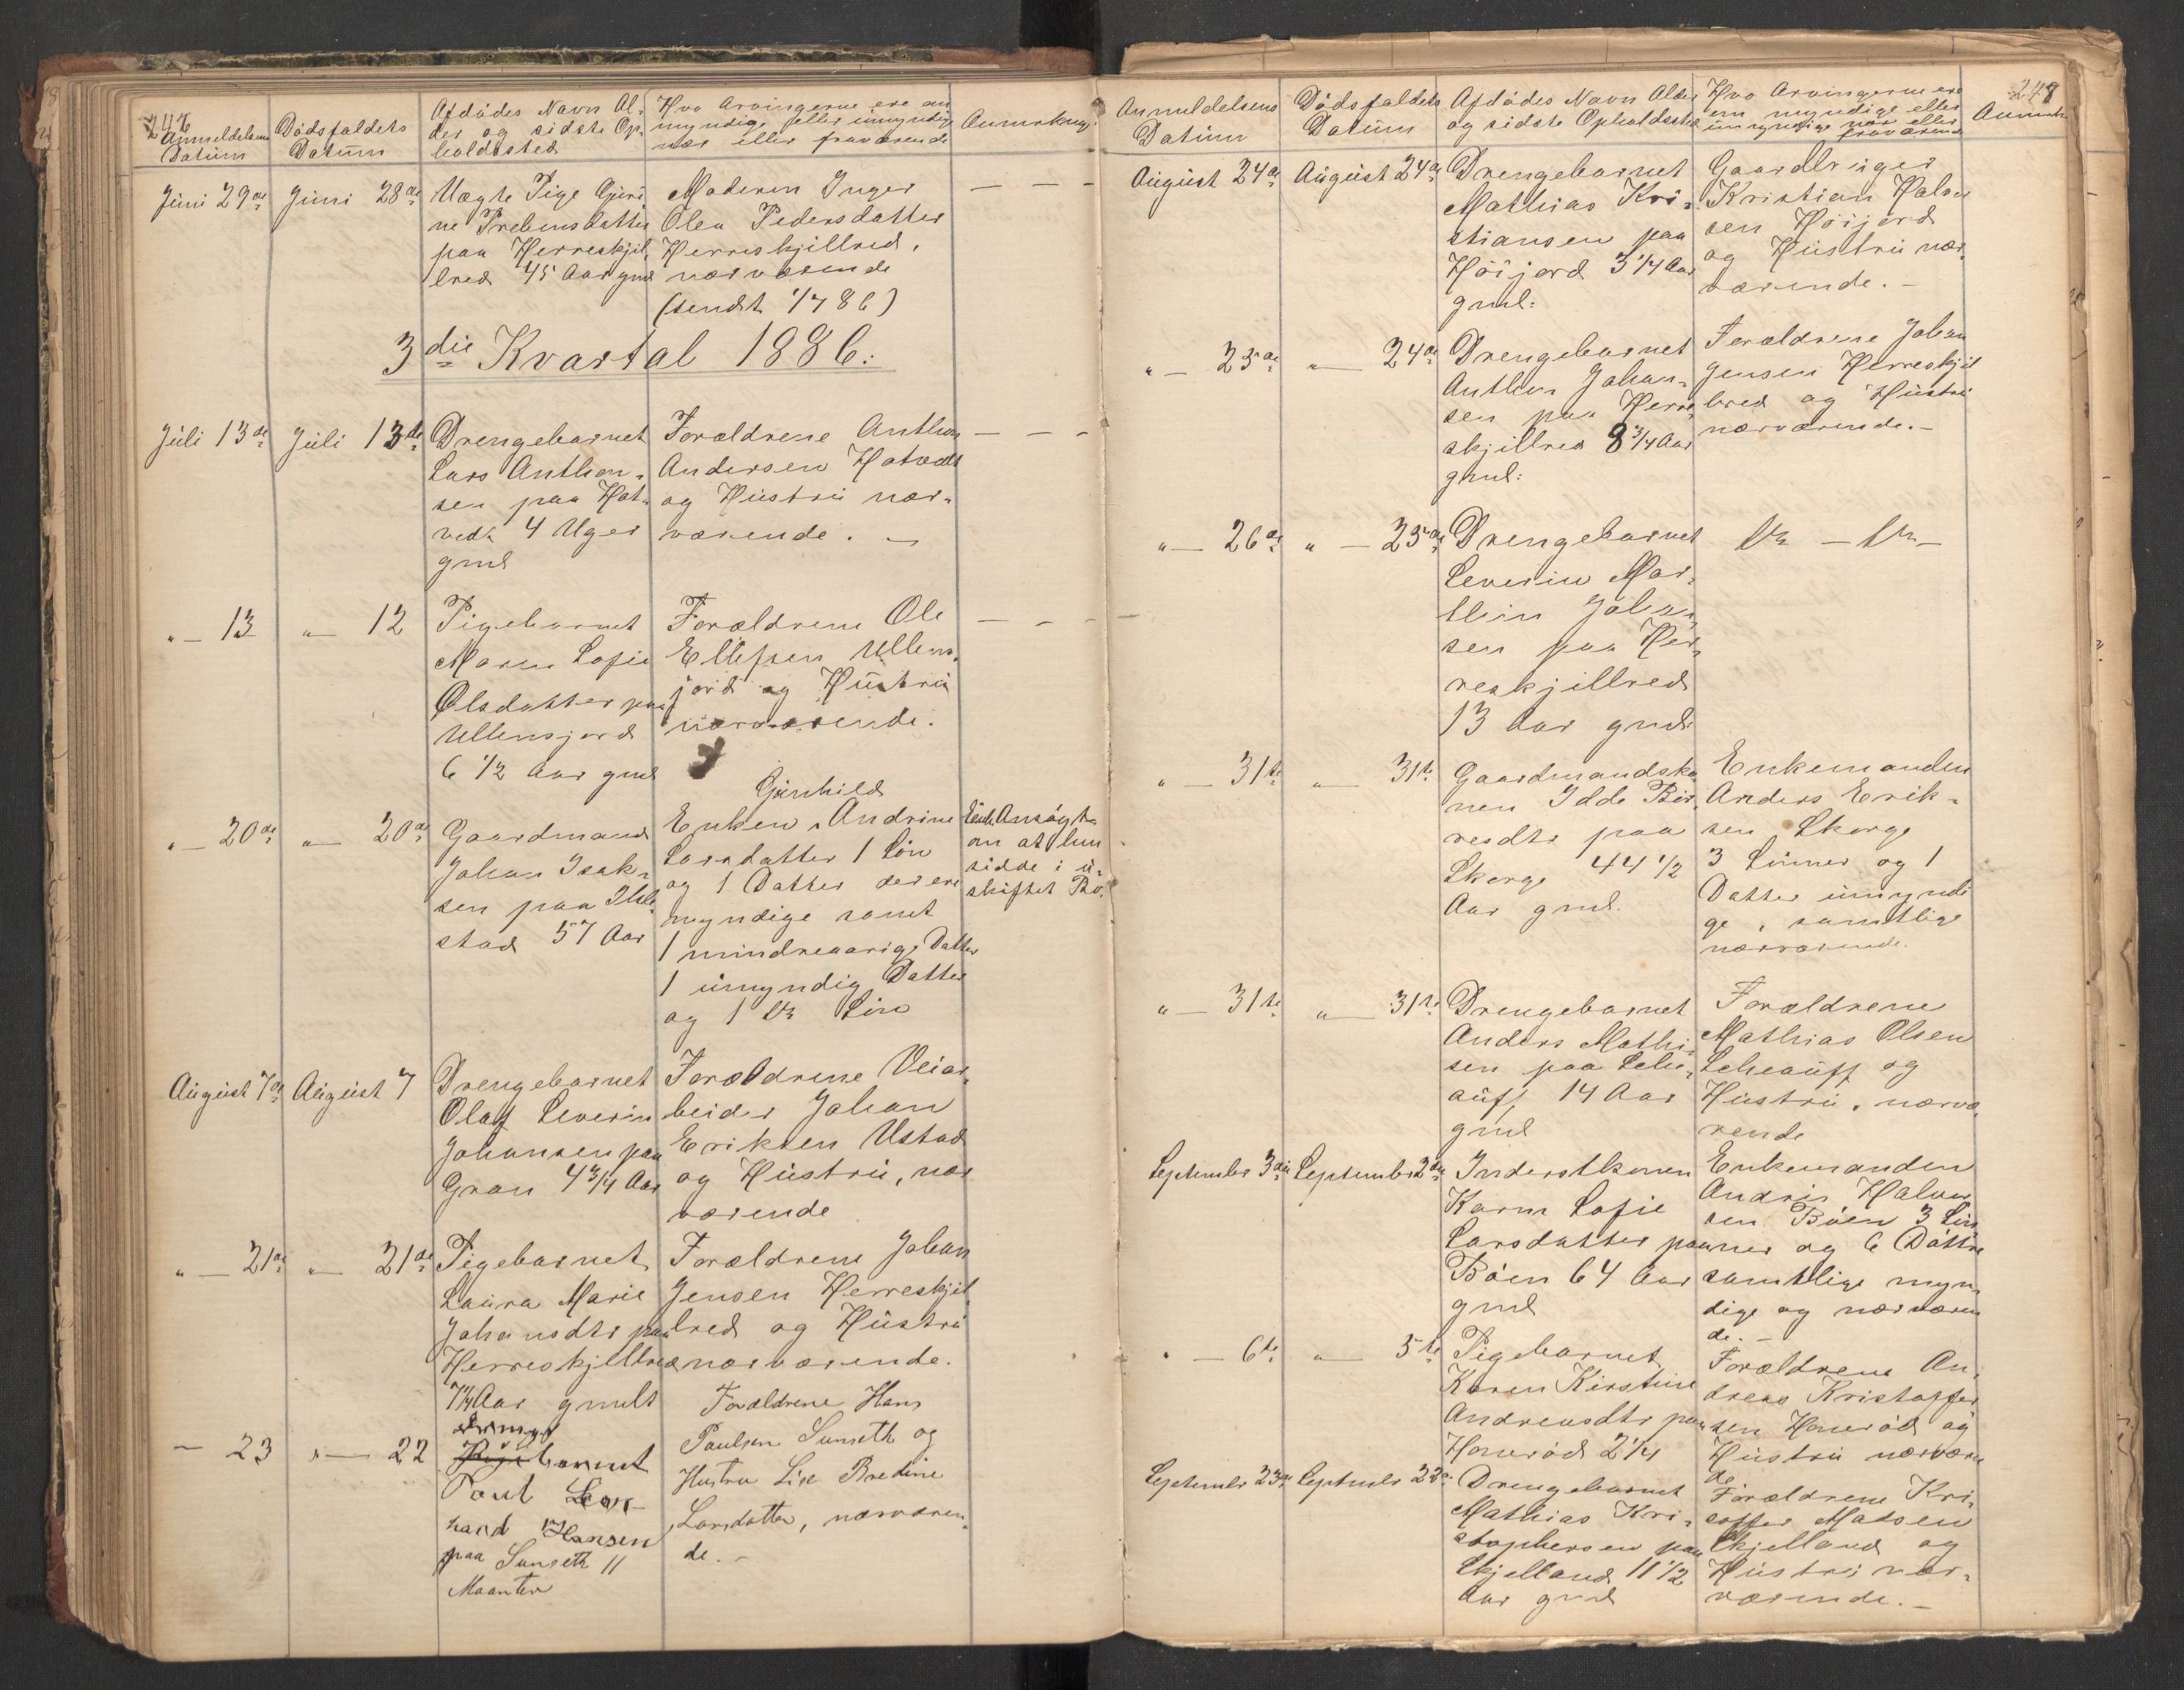 247
Anmeldelsens Datum
Dödsfaldets Datum
Afdödes Navn Al-
der og sidste Op-
holdssted
Hvo Arvingerne ere om
myndige eller umyndige
nær eller fraværende
Anmærkning.
Juni 29de
Juni 28de
Uægte Pige Guri-
ne Prebensdatter
paa Herreskjil-
lred 45 Aar gml
Moderen Inger
Olea Pedersdatter
Herreskjillred.
nærværende
(sendt 1/7 86)
3die Kvartal 1886:
Juli 13de
Juli 13de
Drengebarnet
Lars Anthon-
sen paa Hat-
vedt 4 Uger
gml
Forældrene Anthon
Andersen Hatvedt
og Hustru nær-
værende. -
" - 13
" - 12
Pigebarnet
Maren Sofie
Olsdatter paa
Ullensjord
6 1/2 Aar gml
Forældrene Ole
Ellefsen Ullens-
jord og Hustru
nærværende.
" - 20de
" - 20de
Gaardmand
Johan Isak-
sen paa
stad 57 Aar
Gunhild
Enken Andrine
Larsdatter 1 Sön
og 1 Datter der ere
myndige samt
1 mindreaarige Datter
1 umyndig Datter
og 1 do Sön
Ansögt
om at hun
sidde i u-
skiftet Bo.
August 7de
August 7
Drengebarnet
Olaf Severin
Johansen paa
Gran 4 3/4 Aar
Forældrene Veiar-
beider Johan
Eriksen Ustad
og Hustru, nær
værende
" - 21de
" - 21de
Pigebarnet
Laura Marie
Johansdtr paa
Herreskjellred
7 1/4 Aar gmlt
Forældrene Johan
Jensen Herreskjil-
lred og Hustru
nærværende.
- 23
" - 22
Drenge
Pigebarnet
Paul Leon-
hard Hansen
paa Sunseth 11
Maanter
Forældrene Hans
Paulsen Sunseth og
Hustru Lise Bredine
Larsdatter, nærværen-
de. -
248
Anmeldelsens
Datum
Dödsfaldets
Datum
Afdödes Navn Alder
og sidste Opholdssted
Hvo Arvingerne ere
om myndige eller
umyndige nær eller
fraværende
Anmærk
August 24de
August 24de
Drengebarnet
Mathias Kri-
stiansen paa
Höijord 3 1/4 Aar
gml:
Gaardbruger
Kristian Halvor
sen Höijord
og Hustru nær-
værende. -
" - 25de
" - 24de
Drengebarnet
Anthon Johan-
sen paa Herre-
skjillred 8 3/4 Aar
gml:
Forældrene Johan
Jensen Herreskjil
lred og Hustru
nærværende. -
" - 26de
" - 25de
Drengebarnet
Severin Mar-
thin Johan-
sen paa Her-
reskjillred
13 Aar gml.
do - do -
" - 31te
" - 31te
Gaardmandsko-
nen Idde Ber-
resdtr paa
Skorge 44 1/2
Aar gml.
Enkemanden
Anders Erik-
sen Skorge
3 Sönner og 1
Datter umyndi
ge, samtlige
nærværende.
" - 31te
" - 31te
Drengebarnet
Anders Mathi-
sen paa Sche-
auff 14 Aar
gml
Forældrene
Mathias Olsen
Scheauff og
Hustru, nærvæ-
rende
September 3die
September 2den
Inderstkonen
Karen Sofie
Larsdatter paa
Böen 64 Aar
gml
Enkemanden
Andris Halvor
sen Böen 3 Sön
ner og 6 Döttre
samtlige myn-
dige og nærværen
de. -
" - 6te
" - 5te
Pigebarnet
Karen Kirstine
Andreasdtr paa
Honeröd 2 1/4
Forældrene An-
dreas Kristoffer
sen Honeröd og
Hustru nærværen
de
September 23de
Septembr 22de
Drengebarnet
Mathias Kri-
stophersen paa
Skjelland 11 1/2
Aar gml
Forældrene Kri-
stoffer Matsen
Skjelland og
Hustru nær-
værende. -